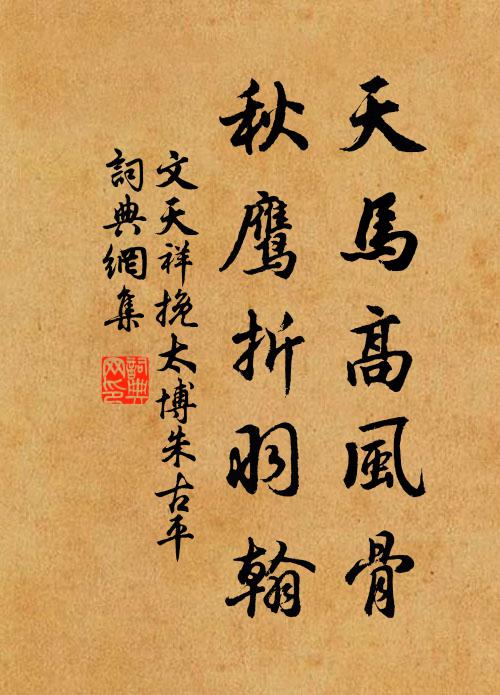 天馬高風骨
秋鹰折羽翰
文天祥挽太博朱古平
詞典網集
詞典
网印